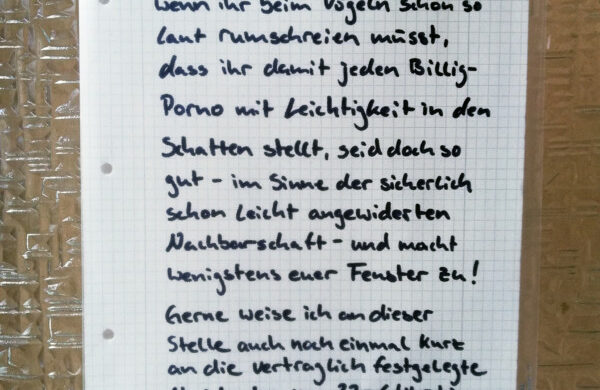 wenn ihr beim Vögeln schon so
laut rumschreien müsst,
dass ihr damit jeden Billig-
Porno mit Leichtigkeit in den
Schatten stellt, seid doch so
gut - im Sinne der sicherlich
schon leicht angewiderten
Nachbarschaft - und macht
wenigstens euer Fenster zu!
Gerne weise ich an dieser
Stelle auch noch einmal kurz
an die vertraglich festgelegte